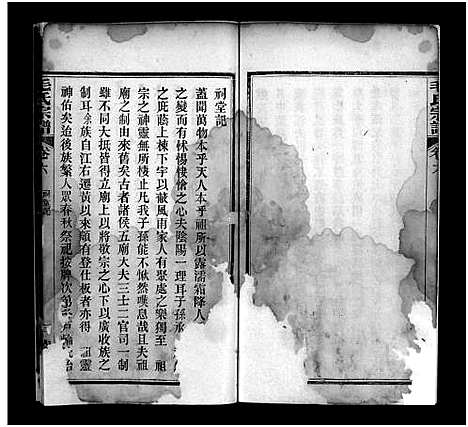 毛氏宗譜
卷六
祠堂記
蓋聞萬物本乎天人本乎祖所以露濡霜降人
之變而有怵惕悽愴之心夫陰陽一理耳子孫承
之庇蔭上棟下宇以蔽風雨家人有聚處之樂獨至 祖
宗之神靈無所棲止凡我子孫能不惄然嘆息哉且夫祖
廟之制由來舊矣古者諸侯五廟大夫三士二官司一制
雖不同大抵皆得立廟上以將敬宗之心下以廣收族之
制耳余族自江右遷黃以來頗有登仕板者亦得 祖靈
神佑矣迨後族繁人眾春秋祭祀按牌次第
毛氏宗譜
卷六
祠堂記